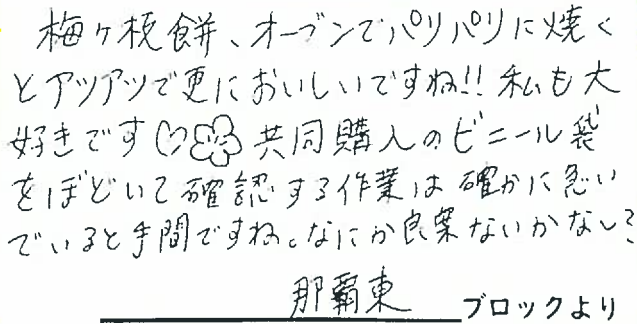 梅ヶ枝餅、オーブンでパリパリに焼く
とアツアツで更においしいですね!! 私も大
好きです♡ 共同購入のビニール袋
をほどいて確認する作業は確かに急い
でいると手間ですね。なにか良案ないかなぁ?
那覇東 ブロックより